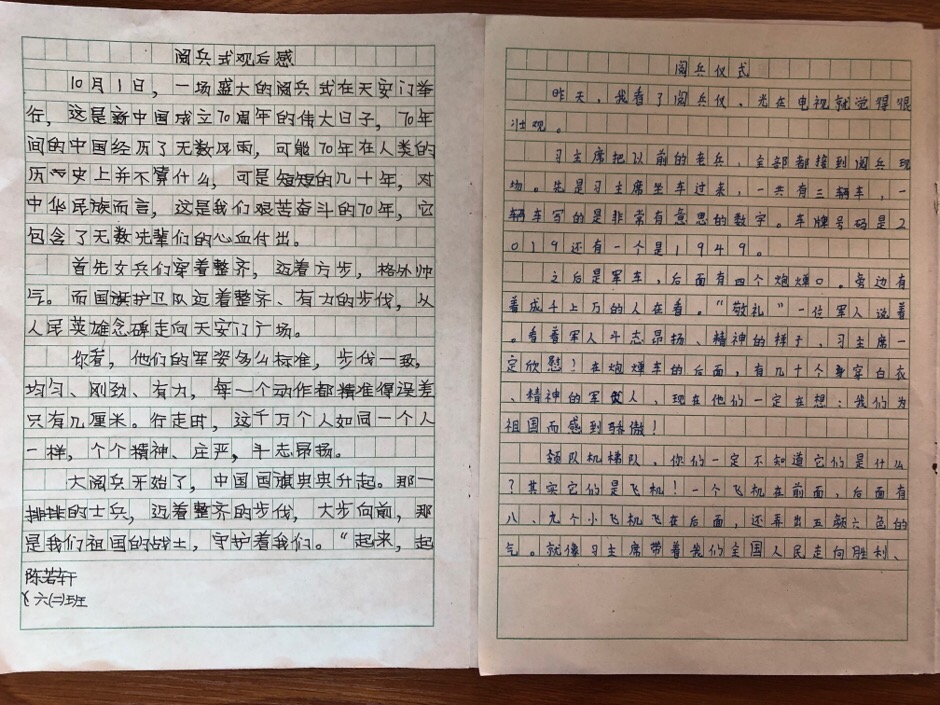 阅兵式观后感
10月1日，一场盛大的阅兵式在天安门举
行，这是新中国成立70周年的伟大日子，70年
间的中国经历了无数风雨，可能70年在人类的
历史上并不算什么，可是短短的几十年，对
中华民族而言，这是我们艰苦奋斗的70年，它
包含了无数先辈们的心血付出。
首先女兵们穿着整齐，迈着方步，格外帅
气。而国旗护卫队迈着整齐、有力的步伐，从
人民英雄念碑走向天安门广场。
你看，他们的军姿多么标准，步伐一致，
均匀、刚劲、有力，每一个动作都精准得误差
只有几厘米。行走时，这千万个人如同一个人
一样，个个精神、庄严，斗志昂扬。
大阅兵开始了，中国国旗央央升起。那一
排排的士兵，迈着整齐的步伐，大步向前，那
是我们祖国的战士，守护着我们。“起来，起
陈若轩
六(二)班
阅兵仪式
昨天，我看了阅兵仪，光在电视就觉得很
壮观。
习主席把以前的老兵，全部都接到阅兵现
场。先是习主席坐车过来，一共有三辆车，一
辆车写的是非常有意思的数字。车牌号码是2
019还有一个是1949。
之后是军车，后面有四个炮燑口。旁边有
着成千上万的人在看。“敬礼”一位军人说着
。看着军人斗志昂扬、精神的样子、习主席一
定欣慰！在炮燑车的后面，有几十个身穿白衣
、精神的军人，现在他们一定在想：我们为
祖国而感到骄傲！
领队机梯队，你们一定不知道它们是什么
？其实它们是飞机！一个飞机在前面，后面有
八、九个小飞机飞在后面，还弄出五颜六色的
气。就像习主席带着我们全国人民走向胜利、